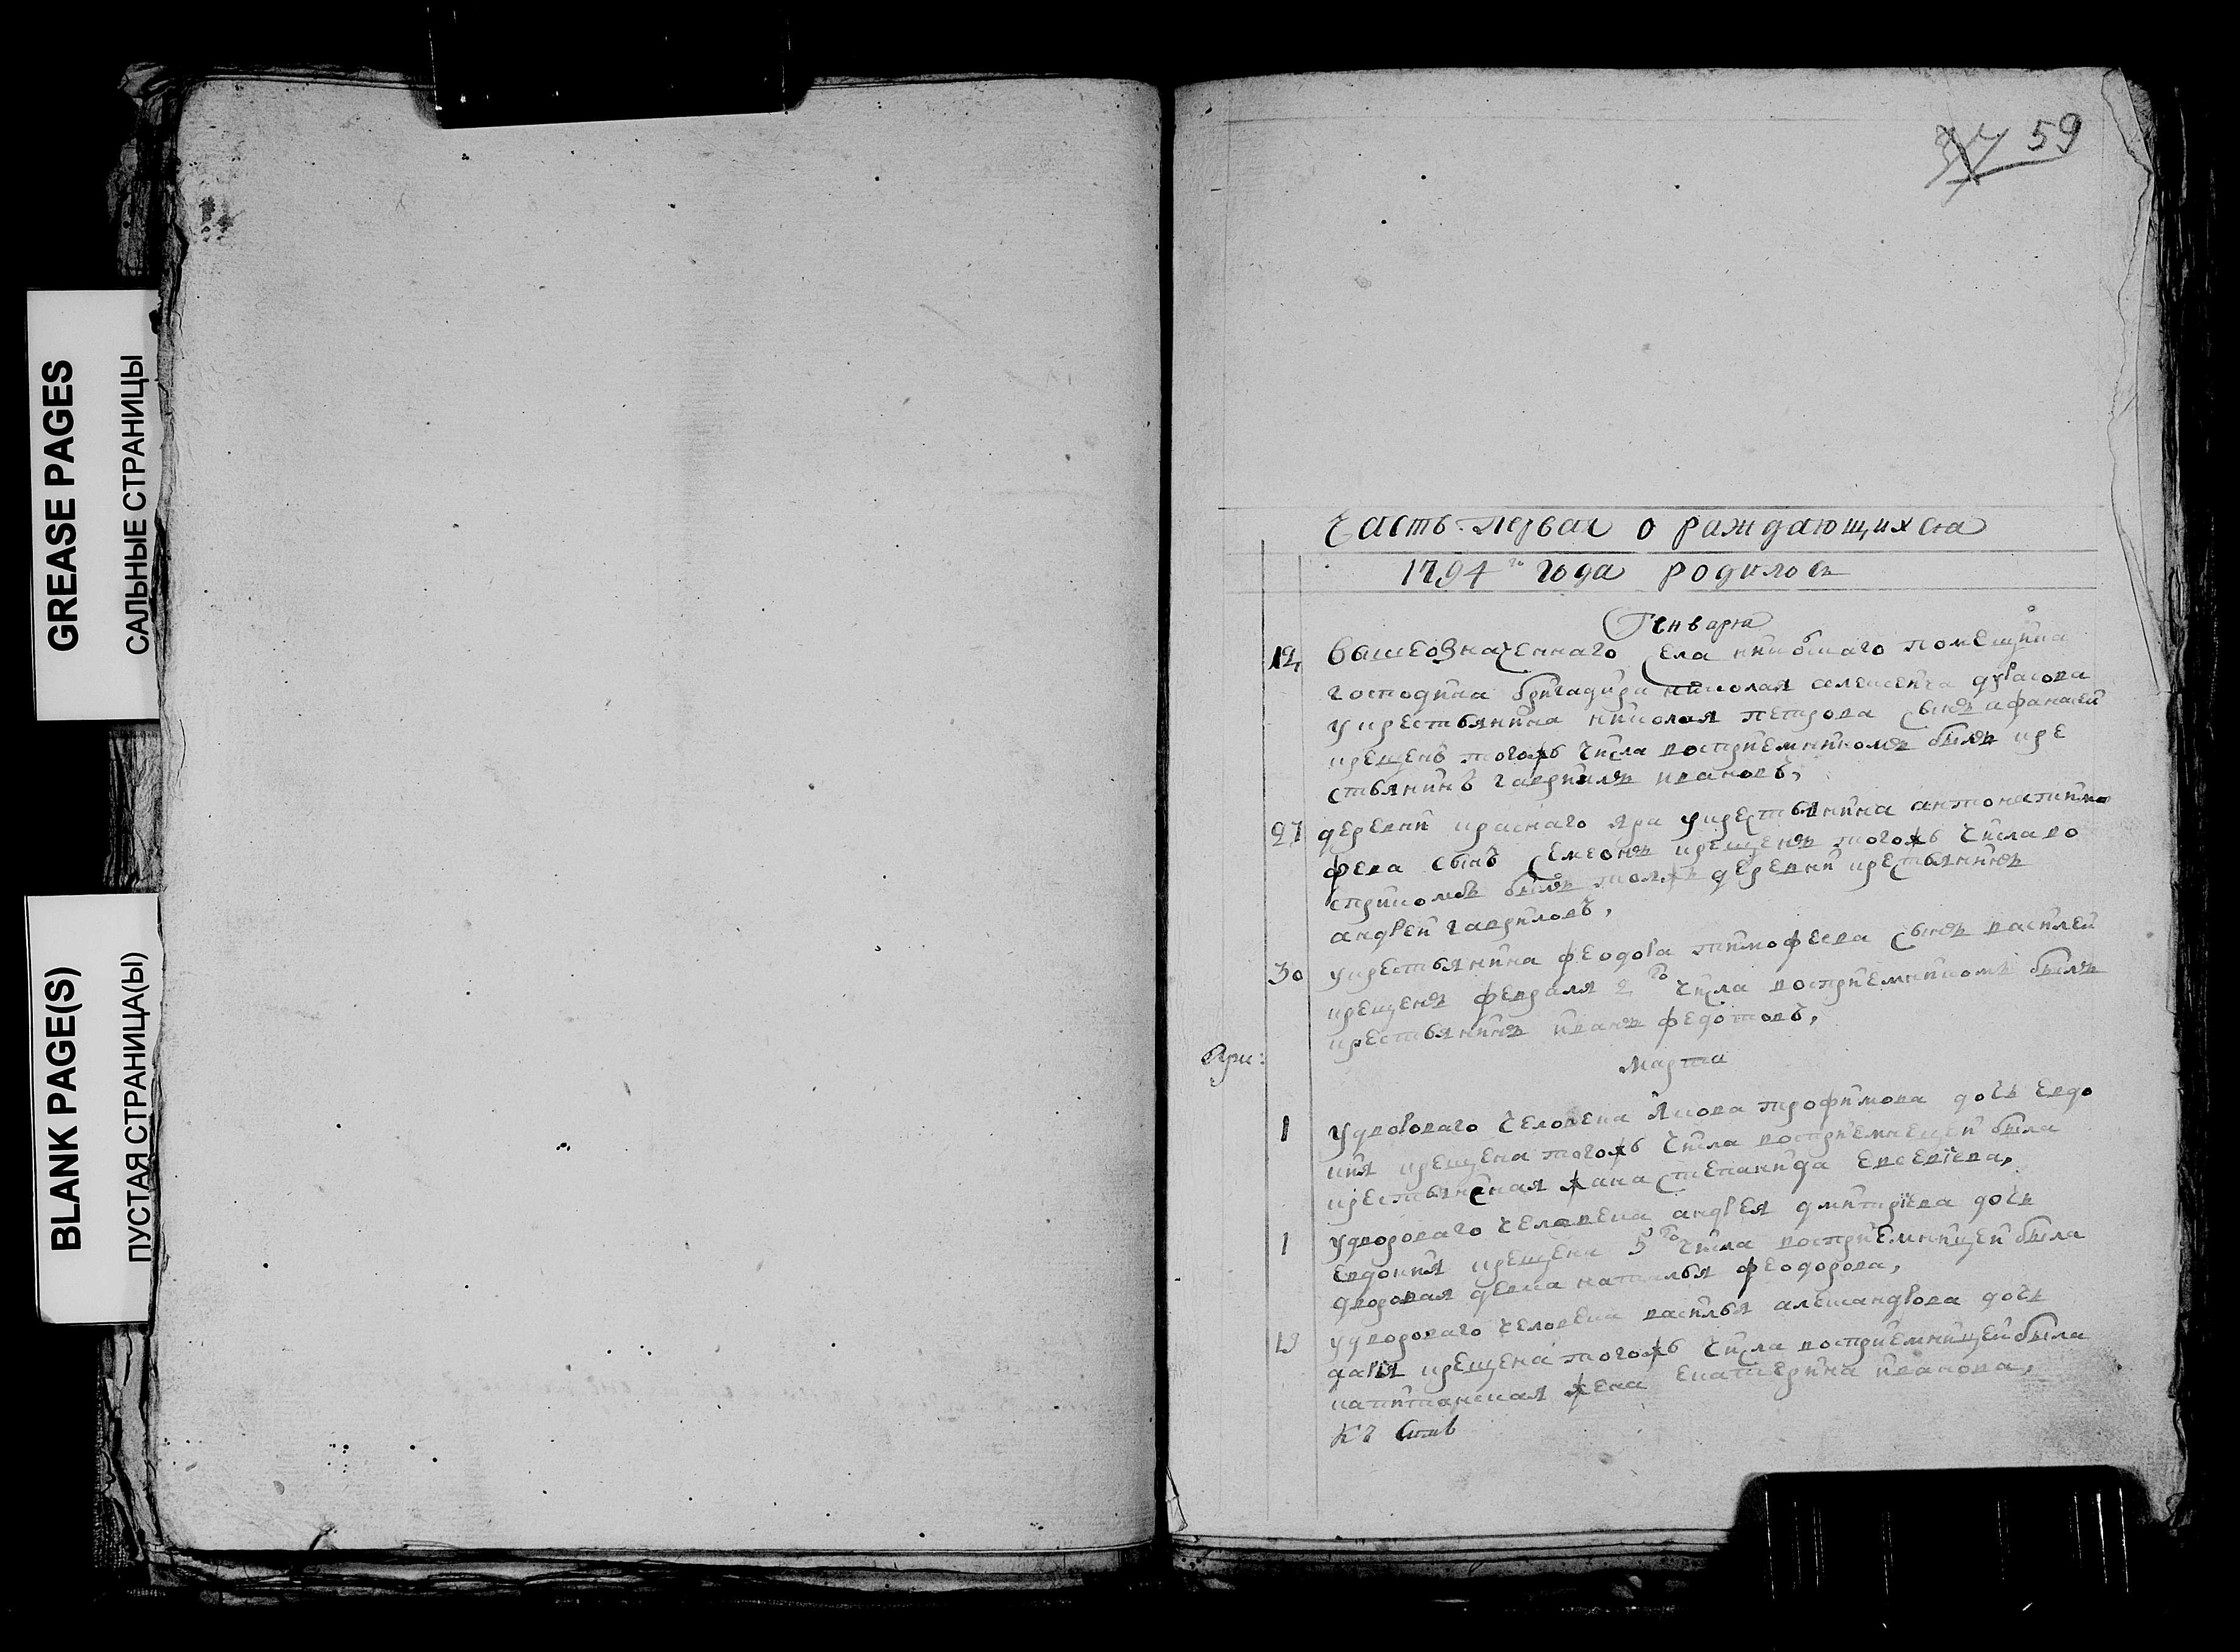 GREASE PAGES
САЛЬНЫЕ СТРАНИЦЫ
BLANK PAGE(S)
ПУСТАЯ СТРАНИЦА(Ы)
59
Часть первая о раждающихся
1794 го года родилось
Генваря
12 вышеозначеннаго села помещика
господина бригадира николая дурасова
у крестьянина николая петрова сынъ афанасей
крещенъ тогожъ числа восприемникомъ былъ кре
стьянинъ гаврилъ ивановъ,
27 деревни краснаго яра у крестьянина антона тимо
феева сынъ семеонъ крещенъ тогожъ числа во
былъ тояжъ деревни крестьянинъ
андрей гавриловъ,
30 у крестьянина феодора тимофеева сынъ василей
крещенъ февраля 2 го числа восприемникомъ былъ
крестьянинъ иванъ федотовъ,
марта
1 у двороваго человека якова трофимова дочь евдо
кия крещена тогожъ числа восприемницей была
крестьянская жана степанида евсевїева,
1 у двороваго человека андрея дмитрїева дочь
евдокия крещена 5 го числа восприемницей была
дворовая девка наталья феодорова,
19 у двороваго человека василья александрова дочь
дарья крещена тогожъ числа восприемницей была
капитанская жена екатерина иванова,